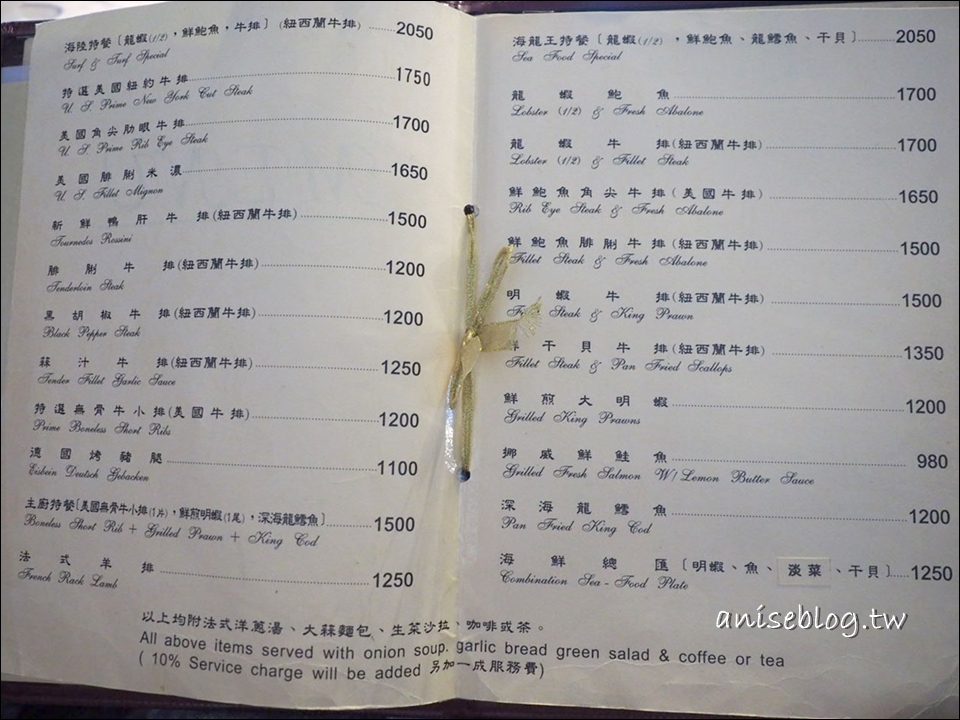 海陸特餐〔龍蝦(1/2)，鮮鮑魚，牛排〕(紐西蘭牛排) 2050
Surf & Turf Special
特選美國紐約牛排 1750
U. S. Prime New York Cut Steak
美國角尖肋眼牛排 1700
U. S. Prime Rib Eye Steak
美國腓脷米濃 1650
U. S. Fillet Mignon
新鮮鴨肝牛排(紐西蘭牛排) 1500
Tournedos Rossini
腓脷牛排(紐西蘭牛排) 1200
Tenderloin Steak
黑胡椒牛排(紐西蘭牛排) 1200
Black Pepper Steak
蒜汁牛排(紐西蘭牛排) 1250
Tender Fillet Garlic Sauce
特選無骨牛小排(美國牛排) 1200
Prime Boneless Short Ribs
德國烤豬腿 1100
Eisbein Deutsch Gebacken
主廚特餐〔美國無骨牛小排(1片)，鮮煎明蝦(1尾)，深海龍鱈魚〕 1500
Boneless Short Rib + Grilled Prawn + King Cod
法式羊排 1250
French Rack Lamb
海龍王特餐〔龍蝦(1/2)，鮮鮑魚、龍鱈魚、干貝〕 2050
Sea Food Special
龍蝦鮑魚 1700
Lobster (1/2) & Fresh Abalone
龍蝦牛排(紐西蘭牛排) 1700
Lobster (1/2) & Fillet Steak
鮮鮑魚角尖牛排(美國牛排) 1650
Rib Eye Steak & Fresh Abalone
鮮鮑魚腓脷牛排(紐西蘭牛排) 1500
Fillet Steak & Fresh Abalone
明蝦牛排(紐西蘭牛排) 1500
Steak & King Prawn
干貝牛排(紐西蘭牛排) 1350
Fillet Steak & Pan Fried Scallops
鮮煎大明蝦 1200
Grilled King Prawns
挪威鮮鮭魚 980
Grilled Fresh Salmon W/Lemon Butter Sauce
深海龍鱈魚 1200
Pan Fried King Cod
海鮮總匯〔明蝦、魚、淡菜、干貝〕 1250
Combination Sea-Food Plate
以上均附法式洋蔥湯、大蒜麵包、生菜沙拉、咖啡或茶。
All above items served with onion soup. garlic bread green salad & coffee or tea
( 10% Service charge will be added 另加一成服務費)
aniseblog.tw